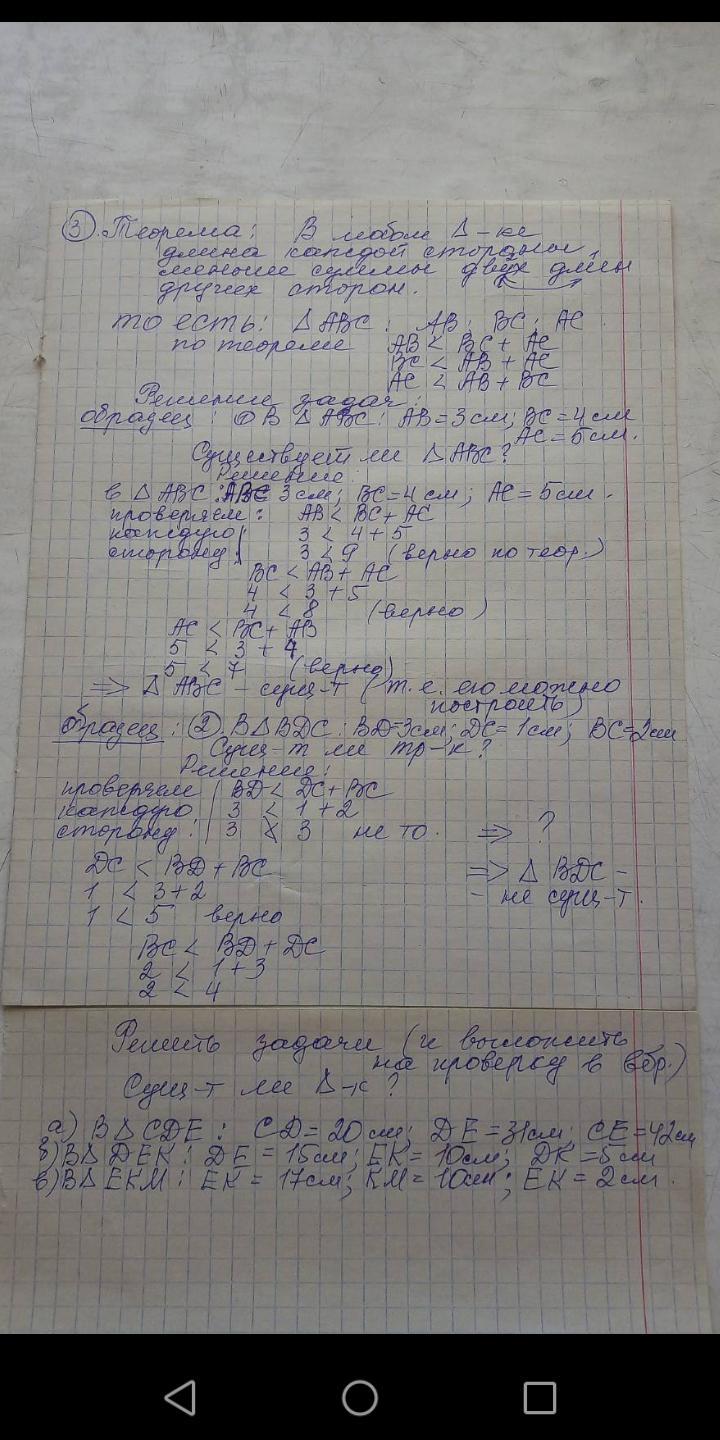 ③. Теорема: В любом Δ-ке
длина каждой стороны
меньше суммы двух длин
других сторон.
то есть: Δ ABC: AB; BC; AC.
по теореме AB < BC + AC
BC < AB + AC
AC < AB + BC
Решение задач:
образец: ① В Δ ABC: AB = 3 см; BC = 4 см
AC = 5 см.
Существует ли Δ ABC?
Решение:
в Δ ABC: 3 см; BC = 4 см; AC = 5 см.
проверяем: AB < BC + AC
каждую 3 < 4 + 5
сторону 3 < 9 (верно по теор.)
BC < AB + AC
4 < 3 + 5
4 < 8 (верно)
AC < BC + AB
5 < 3 + 4
5 < 7 (верно)
⇒ Δ ABC - сущ-т (т.е. его можно
построить)
образец: ②. В Δ BDC: BD = 3 см; DC = 1 см; BC = 2 см
Сущ-т ли тр-к?
Решение:
проверяем BD < DC + BC
каждую 3 < 1 + 2
сторону: 3 ≮ 3 не то. ⇒ ?
DC < BD + BC ⇒ Δ BDC -
1 < 3 + 2 - не сущ-т.
1 < 5 верно
BC < BD + DC
2 < 1 + 3
2 < 4
Решить задачи (и выложить
на проверку в вбр.)
Сущ-т ли Δ-к?
а) В Δ CDE: CD = 20 см; DE = 31 см; CE = 42 см
б) В Δ DEK: DE = 15 см; EK = 10 см; DK = 5 см
в) В Δ EKM: EK = 17 см; KM = 10 см; EK = 2 см.